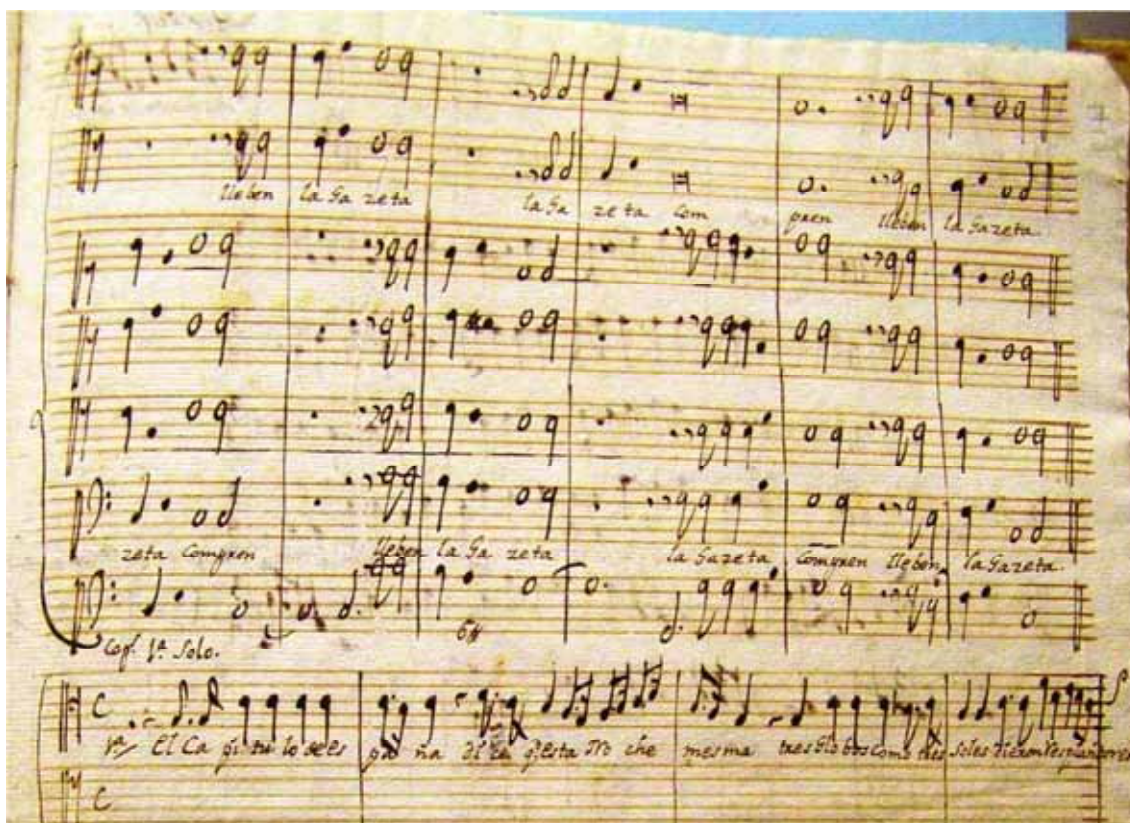 lleben la Gazeta la Ga zeta com pren lleben la Gazeta.
zeta Compren lleben la Ga zeta la Gazeta Compren lleben la Gazeta.
6#
Cop. 1ª. Solo.
1ª El Ca pi tu lo de es pa ña di ze q esta No che mesma tres Globos Como tres Soles dieron Resplandores